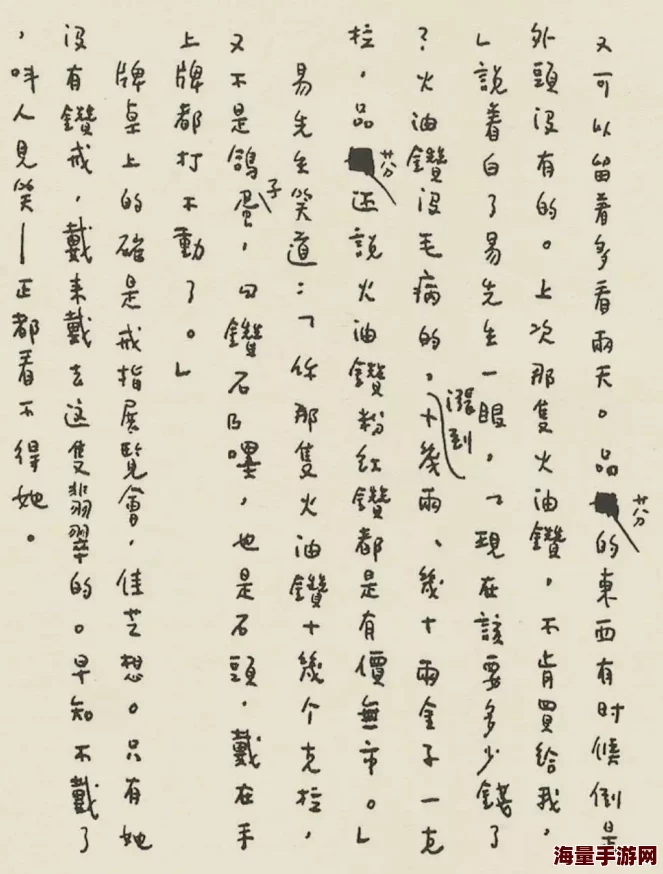 又可以留着多看兩天。品芬的東西有时候倒是
外頭没有的。上次那隻火油鑽，不肯買給我，
」說着白了易先生一眼，「現在該要多少錢了
？火油鑽没毛病的，漲到十幾兩、幾十兩金子一克
拉，品芬还說火油鑽粉紅鑽都是有價無市。」
易先生笑道：「你那隻火油鑽十幾个克拉，
又不是鴿子蛋，『鑽石』嘿，也是石頭，戴在手
上牌都打不動了。」
牌桌上的確是戒指展覽會，佳芝想。只有她
没有鑽戒，戴来戴去這隻翡翠的。早知不戴了
，叫人見笑——正都看不得她。
海量手游网